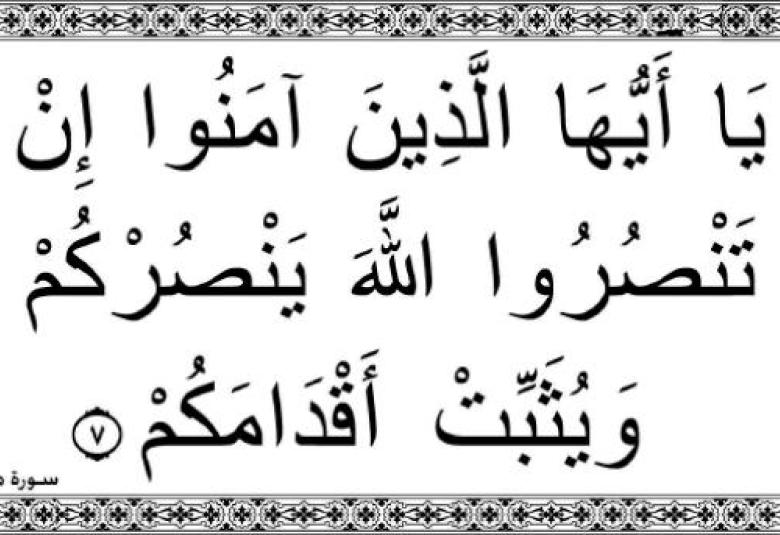 يَا أَيُّهَا الَّذِينَ آمَنُوا إِنْ
تَنْصُرُوا اللَّهَ يَنْصُرْكُمْ
وَيُثَبِّتْ أَقْدَامَكُمْ ٧
سورة